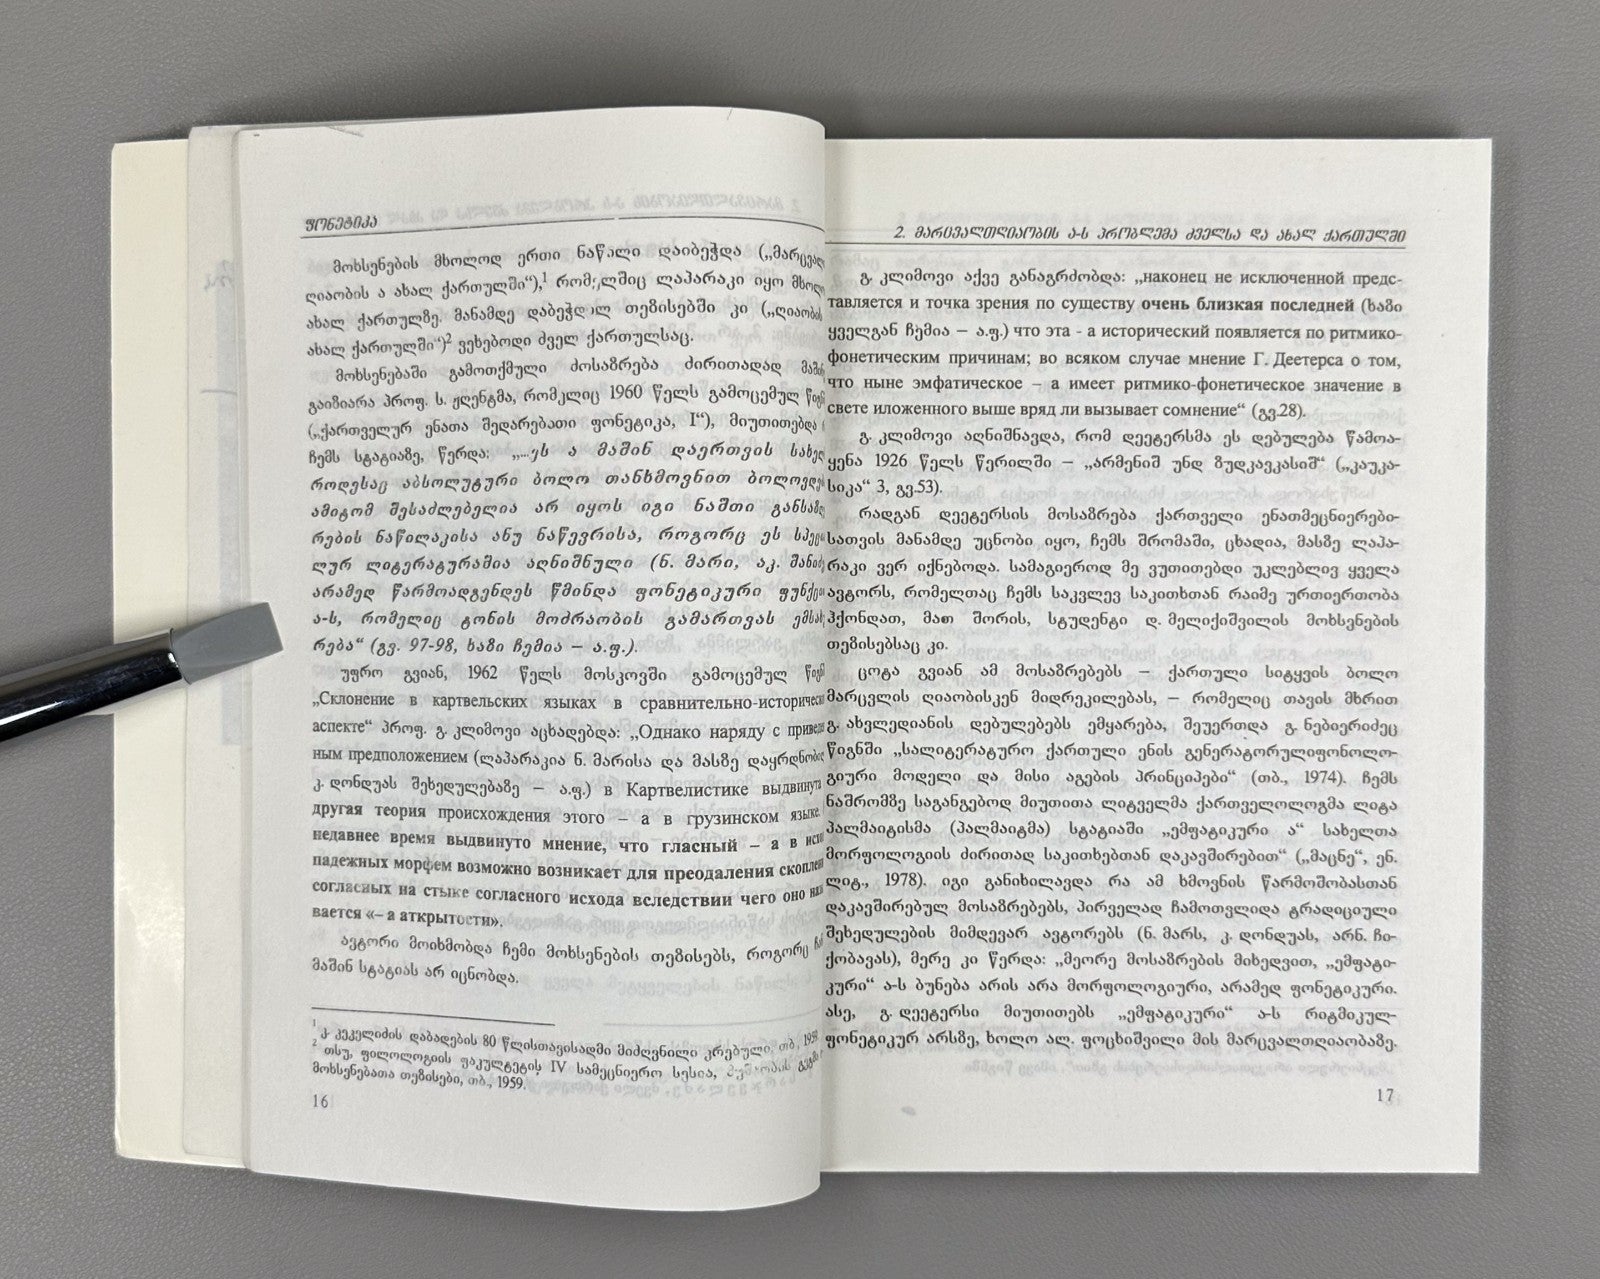 ფონეტიკა
მოხსენების მხოლოდ ერთი ნაწილი დაიბეჭდა („მარცვალ
ღიაობის ა ახალ ქართულში“),1 რომელშიც ლაპარაკი იყო მხოლ
ახალ ქართულზე. მანამდე დაბეჭდილ თეზისებში კი („ღიაობის
ახალ ქართულში“)2 ვეხებოდი ძველ ქართულსაც.
მოხსენებაში გამოთქმული მოსაზრება ძირითადად მაშინ
გაიზიარა პროფ. ს. ჟღენტმა, რომელიც 1960 წელს გამოცემულ წიგნ
(„ქართველურ ენათა შედარებათი ფონეტიკა, I“), მიუთითებდა
ჩემს სტატიაზე, წერდა: „...ეს ა მაშინ დაერთვის სახელ
როდესაც აბსოლუტური ბოლო თანხმოვნით ბოლოვდებ
ამიტომ შესაძლებელია არ იყოს იგი ნაშთი განსაზღ
რების ნაწილაკისა ანუ ნაწევრისა, როგორც ეს სპეცი
ლურ ლიტერატურაშია აღნიშნული (ნ. მარი, აკ. შანიძე
არამედ წარმოადგენდეს წმინდა ფონეტიკური ფუნქცი
ა-ს, რომელიც ტონის მოძრაობის გამართვას ემსახ
რება“ (გვ. 97-98, ხაზი ჩემია – ა.ფ.).
უფრო გვიან, 1962 წელს მოსკოვში გამოცემულ წიგნ
„Склонение в картвельских языках в сравнительно-историческ
аспекте“ პროფ. გ. კლიმოვი აცხადებდა: „Однако наряду с приведе
ным предположением (ლაპარაკია ნ. მარისა და მასზე დაყრდნობილ
კ. დონდუას შეხედულებაზე – ა.ფ.) в Картвелистике выдвинута
другая теория происхождения этого – а в грузинском языке.
недавнее время выдвинуто мнение, что гласный – а в исх
падежных морфем возможно возникает для преодаления скоплен
согласных на стыке согласного исхода вследствии чего оно наз
вается «– а аткрытости».
ავტორი მოიხმობდა ჩემი მოხსენების თეზისებს, როგორც ჩან
მაშინ სტატიას არ იცნობდა.
1 კ. კეკელიძის დაბადების 80 წლისთავისადმი მიძღვნილი კრებული, თბ., 1959.
2 თსუ, ფილოლოგიის ფაკულტეტის IV სამეცნიერო სესია, მუშაობის გეგმა
მოხსენებათა თეზისები, თბ., 1959.
16
2. მარცვალთღიაობის ა-ს პრობლემა ძველსა და ახალ ქართულში
გ. კლიმოვი აქვე განაგრძობდა: „наконец не исключенной предс-
тавляется и точка зрения по существу очень близкая последней (ხაზი
ყველგან ჩემია – ა.ფ.) что эта - а исторический появляется по ритмико-
фонетическим причинам; во всяком случае мнение Г. Деетерса о том,
что ныне эмфатическое – а имеет ритмико-фонетическое значение в
свете иложенного выше вряд ли вызывает сомнение“ (გვ.28).
გ. კლიმოვი აღნიშნავდა, რომ დეეტერსმა ეს დებულება წამოა-
ყენა 1926 წელს წერილში – „არმენიშ უნდ ზუდკავკასიშ“ („კაუკა-
სიკა“ 3, გვ.53).
რადგან დეეტერსის მოსაზრება ქართველი ენათმეცნიერები-
სათვის მანამდე უცნობი იყო, ჩემს შრომაში, ცხადია, მასზე ლაპა-
რაკი ვერ იქნებოდა. სამაგიეროდ მე ვუთითებდი უკლებლივ ყველა
ავტორს, რომელთაც ჩემს საკვლევ საკითხთან რაიმე ურთიერთობა
ჰქონდათ, მათ შორის, სტუდენტი დ. მელიქიშვილის მოხსენების
თეზისებსაც კი.
ცოტა გვიან ამ მოსაზრებებს – ქართული სიტყვის ბოლო
მარცვლის ღიაობისკენ მიდრეკილებას, – რომელიც თავის მხრით
გ. ახვლედიანის დებულებებს ემყარება, შეუერთდა გ. ნებიერიძეც
წიგნში „სალიტერატურო ქართული ენის გენერატორულიფონოლო-
გიური მოდელი და მისი აგების პრინციპები“ (თბ., 1974). ჩემს
ნაშრომზე საგანგებოდ მიუთითა ლიტველმა ქართველოლოგმა ლიტა
პალმაიტისმა (პალმაიტმა) სტატიაში „ემფატიკური ა“ სახელთა
მორფოლოგიის ძირითად საკითხებთან დაკავშირებით“ („მაცნე“, ენ.
ლიტ., 1978). იგი განიხილავდა რა ამ ხმოვნის წარმოშობასთან
დაკავშირებულ მოსაზრებებს, პირველად ჩამოთვლიდა ტრადიციული
შეხედულების მიმდევარ ავტორებს (ნ. მარს, კ. დონდუას, არნ. ჩი-
ქობავას), მერე კი წერდა: „მეორე მოსაზრების მიხედვით, „ემფატი-
კური“ ა-ს ბუნება არის არა მორფოლოგიური, არამედ ფონეტიკური.
ასე, გ. დეეტერსი მიუთითებს „ემფატიკური“ ა-ს რიტმიკულ-
ფონეტიკურ არსზე, ხოლო ალ. ფოცხიშვილი მის მარცვალთღიაობაზე.
17